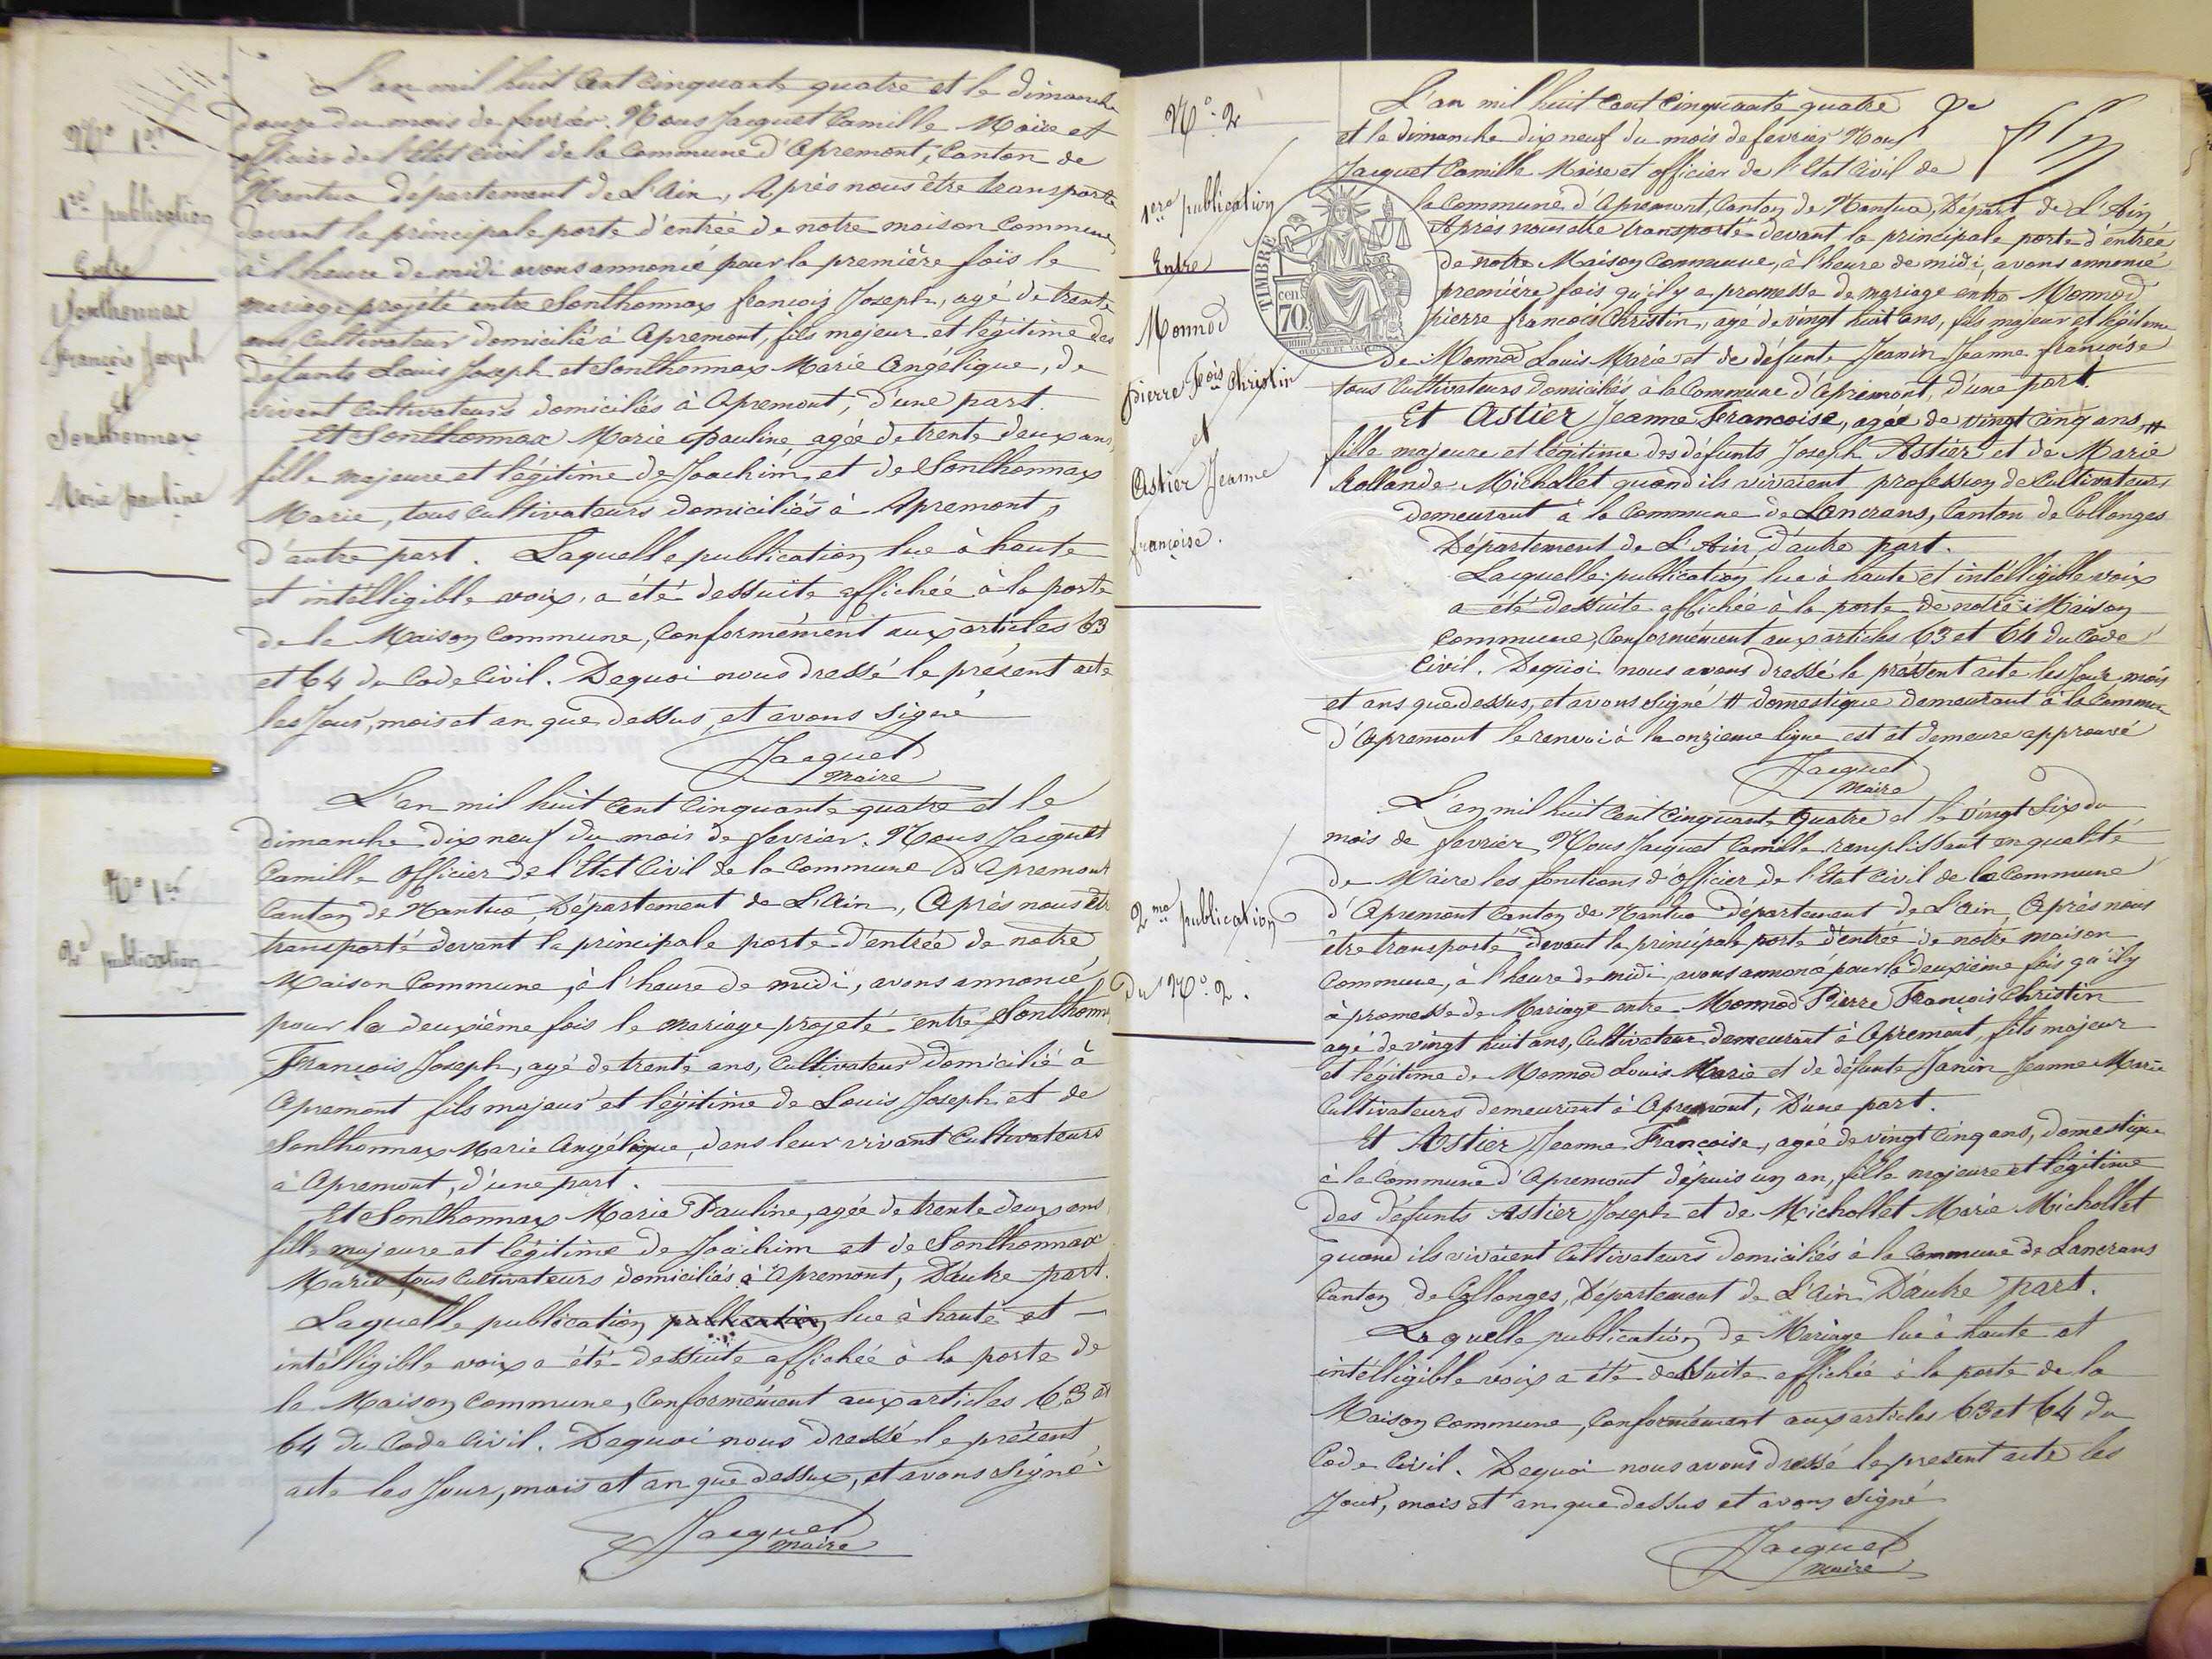 N° 1er
1re publication
Entre
Sonthonnax
François Joseph
et
Sonthonnax
Marie pauline
L'an mil huit Cent Cinquante quatre et le dimanche
douze du mois de fevrier. Nous Jacquet Camille Maire et
officier de l'Etat Civil de la Commune d'Apremont, Canton de
Nantua département de L'Ain, Après nous être transporté
devant la principale porte d'entrée de notre maison Commune,
à l'heure de midi avons annoncé pour la première fois le
mariage projeté entre Sonthonnax françois Joseph, agé de trente
ans, Cultivateur domicilié à Apremont, fils majeur et légitime des
défunts Louis Joseph et Sonthonnax Marie Angélique, de
vivant Cultivateurs domiciliés à Apremont, d'une part.
Et Sonthonnax Marie pauline, agée de trente deux ans,
fille majeure et légitime de Joachim et de Sonthonnax
Marie, tous Cultivateurs domiciliés à Apremont,
d'autre part. Laquelle publication lue à haute
et intélligible voix, a été dessuite affichée à la porte
de la Maison Commune, Conformément aux articles 63
et 64 du Code Civil. Dequoi nous dressé le présent acte
les Jour, mois et an que dessus, et avons signé
Jacquet
Maire
N° 1er
2e publication
L'an mil huit Cent Cinquante quatre et le
dimanche dix neuf du mois de fevrier. Nous Jacquet
Camille Officier de l'Etat Civil de la Commune d'Apremont
Canton de Nantua, Département de L'Ain, Après nous être
transporté devant la principale porte d'entrée de notre
Maison Commune, à l'heure de midi, avons annoncé
pour la deuxième fois le mariage projeté entre Sonthonn
François Joseph, agé de trente ans, Cultivateur domicilié à
Apremont fils majeur et légitime de Louis Joseph et de
Sonthonnax Marie Angélique, dans leur vivant Cultivateurs
à Apremont, d'une part.
Et Sonthonnax Marie Pauline, agée de trente deux ans
fille majeure et légitime de Joachim et de Sonthonnax
Marie, tous Cultivateurs domiciliés à Apremont, D'autre part.
Laquelle publication publication lue à haute et
intélligible voix a été dessuite affichée à la porte de
la Maison Commune, Conformément aux articles 63 et
64 du Code Civil. Dequoi nous dressé le présent
acte les Jour, mois et an que dessus, et avons signé
Jacquet
maire
N° 2
1ere publication
Entre
Monnod
pierre Fois Christin
et
Astier Jeanne
françoise.
TIMBRE
cen.
70
L'an mil huit Cent Cinquante quatre
et le dimanche dix neuf du mois de fevrier Nous
Jacquet Camille Maire et officier de l'Etat Civil de
la Commune d'Apremont, Canton de Nantua, Départ. de L'Ain
Après nous être transporté devant la principale porte d'entrée
de notre Maison Commune, à l'heure de midi, avons annoncé
première fois qu'il y a promesse de mariage entre Monnod
pierre francois Christin, agé de vingt huit ans, fils majeur et légitime
de Monnod Louis Marie et de défunte Jeanin Jeanne françoise
tous Cultivateurs domiciliés à la Commune d'Apremont, d'une part.
Et Astier Jeanne Francoise, agée de vingt cinq ans, #
fille majeure et légitime des défunts Joseph Astier et de Marie
Rollande Michollet quand ils vivaient profession de Cultivateurs
demeurant à la Commune de Lancrans, Canton de Collonges
Département de L'Ain, d'autre part.
Laquelle publication lue à haute et intélligible voix
a été dessuite affichée à la porte de notre Maison
Commune, Conformément aux articles 63 et 64 du Code
Civil. Dequoi nous avons dressé le préssent acte les Jour mois
et ans que dessus, et avons signé # domestique demeurant à la Commune
d'Apremont le renvoi à la onzieme ligne est et demeure approuvé
Jacquet
Maire
2me publication
du N° 2.
L'an mil huit Cent Cinquante Quatre et le vingt Six du
mois de fevrier, Nous Jacquet Camille remplissant en qualité
de Maire les fonctions d'Officier de l'Etat Civil de la Commune
d'Apremont Canton de Nantua département de L'ain, Après nous
être transporté devant la principale porte d'entrée de notre maison
Commune, à l'heure de midi, avons annoncé pour la deuxième fois qu'il y
à promesse de Mariage entre Monnod Pierre François Christin
agé de vingt huit ans, Cultivateur demeurant à Apremont, fils majeur
et légitime de Monnod Louis Marie et de défunte Janin Jeanne Marie
Cultivateurs demeurant à Apremont, D'une part.
Et Astier Jeanne Françoise, agée de vingt Cinq ans, domestique
à la Commune d'Apremont dépuis un an, fille majeure et légitime
des défunts Astier Joseph et de Michollet Marie Michollet
quand ils vivaient Cultivateurs domiciliés à la Commune de Lancrans
Canton de Collonges, Département de L'Ain D'autre part.
Laquelle publication de Mariage lue à haute et
intélligible voix a été dessuite affichée à la porte de la
Maison Commune, Conformément aux articles 63 et 64 du
Code Civil. Dequoi nous avons dressé le present acte les
Jour, mois et an que dessus et avons signé
Jacquet
Maire